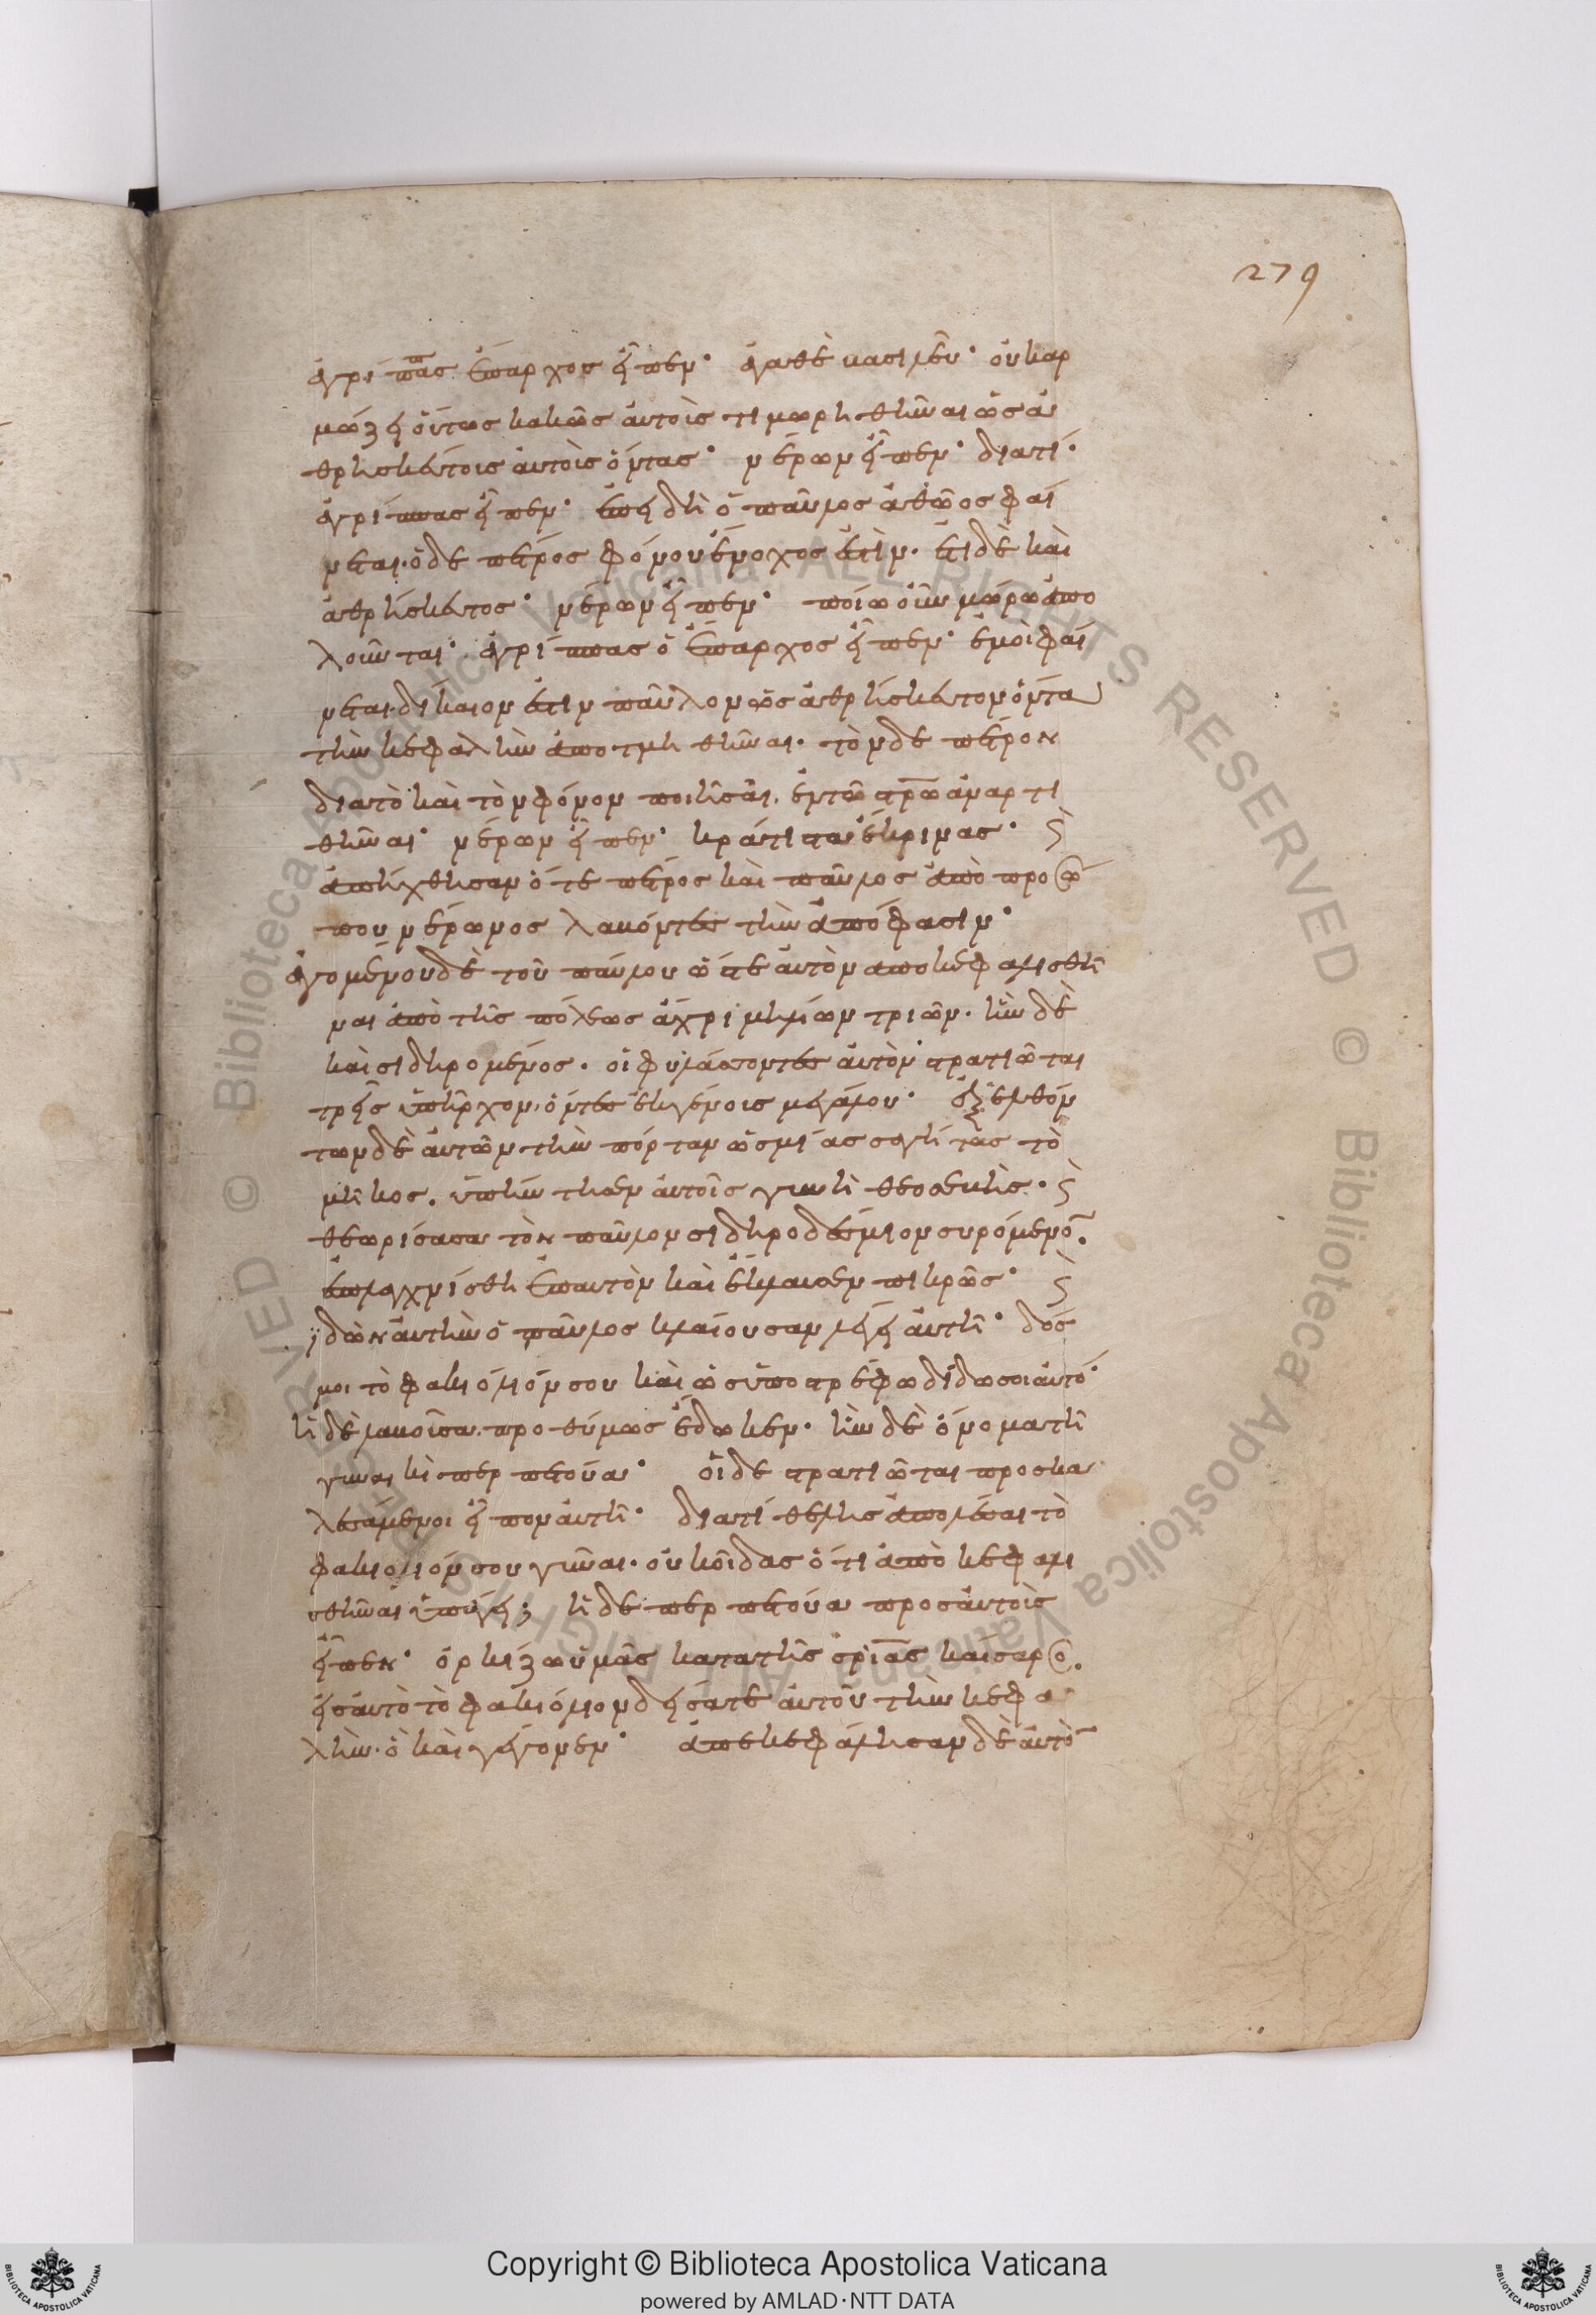 279
ἀγρίππας ἔπαρχος εἶπεν· ἀγαθὲ βασιλεῦ· οὐχ ἁρ
μώζει οὕτως κακῶς αὐτοὺς τιμωρηθῆναι ὡς ἀ
θρησκεύτοις αὐτοῖς ὄντας· νέρων εἶπεν· διατί·
ἀγρίππας εἶπεν· ἐπειδὴ ὁ παῦλος ἀθῶος φαί
νεται· ὁ δε πέτρος φόνου ἔνοχος ἐστὶν· ἔτι δὲ καὶ
ἀθρήσκευτος· νέρων εἶπεν· ποίω οὖν μόρω ἀπο
λοῦνται· ἀγρίππας ὁ ἔπαρχος εἶπεν· ἐμοὶ φαί
νεται δίκαιον ἐστιν παῦλον ὡς ἀθρήσκευτον ὄντα
τὴν κεφαλὴν ἀποτμηθῆναι· τὸν δε πέτρον
διατὸ καὶ τὸν φόνον ποιῆσαι, ἐν τῶ στρῶ ἀναρτι
θῆναι· νέρων εἶπεν· κράτιστα ἔκρινας· ϛ
ἀπήχθησαν ὅ τε πέτρος καὶ παῦλος ἀπὸ προσώ
που νέρωνος λαβόντες τὴν ἀπόφασιν·
ἀγομένου δὲ τοῦ παύλου ὥστε αὐτὸν ἀποκεφαλισθῆ
ναι ἀπὸ τῆς πόλεως ἄχρι μιλίων τριῶν· ἦν δὲ
καὶ σιδηρομένος· οἱ φυλάσσοντες αὐτὸν στρατιῶται
τρεῖς ὑπῆρχον, ὄντες ἐκ γένοις μεγάλου· ἐξελθόν
των δὲ αὐτῶν τὴν πόρταν ὡς μίας σαγίτας τὸ
μῆκος· ὑπήντησεν αὐτοῖς γυνὴ θεοσεβὴς· ϛ
θεωρίσασα τὸν παῦλον σιδηροδέσμιον συρόμενον·
ἐσπλαχνίσθη ἐπαυτὸν καὶ ἔκλαυσεν πικρῶς· ϛ
ἰδὼν αὐτὴν ὁ παῦλος κλαίουσαν λέγει αὐτῆ· δός
μοι τὸ φακιόλιόν σου καὶ ὡς ὑποστρέφω δίδω σοι αὐτό·
ἡ δὲ λαβοῦσα προθύμως ἔδωκεν· ἦν δὲ ὄνομα τῆ
γυναικὶ περπετούα· οἱ δε στρατιῶται προσκα
λεσάμενοι εἶπον αὐτῆ· διατί θέλης ἀπολέσαι τὸ
φακιόλιόν σου γύναι· οὐκ οἶδας ὅτι ἀπὸ κεφαλι
σθῆναι ὑπάγει; ἡ δε περπετούα προς αὐτοὺς
εἶπεν· ὁρκίζω ὑμᾶς κατα τῆς σρίας καίσαρος·
εἰς αὐτὸ τὸ φακιόλιον δείσατε αὐτοῦ τὴν κεφα
λὴν· ὃ καὶ γέγονεν· ἀπεκεφάλησαν δὲ αὐτὸν
Copyright © Biblioteca Apostolica Vaticana
powered by AMLAD·NTT DATA